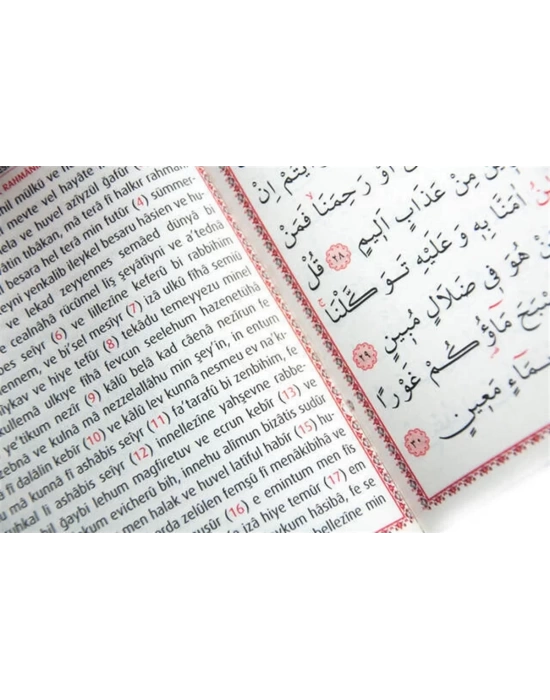 RAHMANİ
mülkü ve
mevte vel hayâte
ve huvel azîyzül gafûr (
tıbâkan, mâ terâ fî halkır rahmân
besara hel terâ min futûr (4) sümmer-
yenkalib ileykel besaru hâsien ve hu-
ve lekad zeyyennes semâed dünyâ bi
ve cealnâhâ rücûmel liş şeyâtiyni ve a'tednâ
seiyr (6) ve lillezîne keferû bi rabbihim
ve bi'sel mesiyr (7) izâ ülkû fîhâ semiû
ve hiye tefûr (8) tekâdu temeyyezu minel
ulkıye fîhâ fevcun seelehum hazenetühâ
e'tikum nezîr (9) kâlû belâ kad câenâ nezîrun fe
ve kulnâ mâ nezzelallâhu min şey'in, in entum
fî dalâlin kebîr (10) ve kâlû lev kunnâ nesmeu ev na'kı-
mâ kunnâ fî ashâbis seiyr (11) fa'terafû bi zenbihim, fe
li ashâbis seiyr (12) innellezîne yahşevne rabbe-
bil ğaybi lehum mağfiretuv ve ecrun kebîr (13) ve
evicherû bih, innehu alîmun bizâtis sudûr
men halak ve huvel latîful habîr (15) hu-
arda zelûlen femşû fî menâkibihâ ve
nuşûr (16) e emintum men fis
izâ hiye temûr (17) em
aleykum hâsibâ, fe se
kablehim
اَوْ رَحِمَنَا فَمَنْ
مِنْ عَذَابٍ اَلِيمٍ ٢٨ قُلْ
اٰمَنَّا بِهِ وَعَلَيْهِ تَوَكَّلْنَا
مَنْ هُوَ فِي ضَلَالٍ مُبِينٍ ٢٩
مَاؤُكُمْ غَوْرًا
مَعِينٍ ٣٠